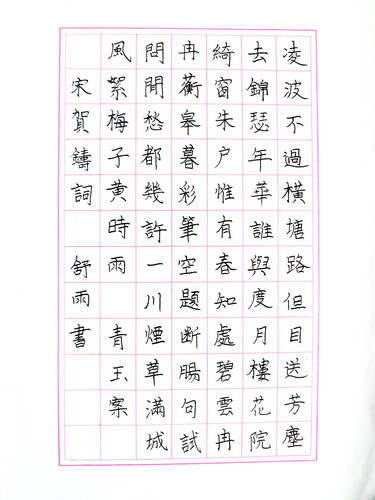 凌波不過橫塘路但目送芳塵
去錦瑟年華誰與度月樓花院
綺窗朱户惟有春知處碧雲冉
冉蘅皋暮彩筆空題断腸句試
問閒愁都幾許一川煙草滿城
風絮梅子黃時雨 青玉案
宋賀鑄詞 舒雨書